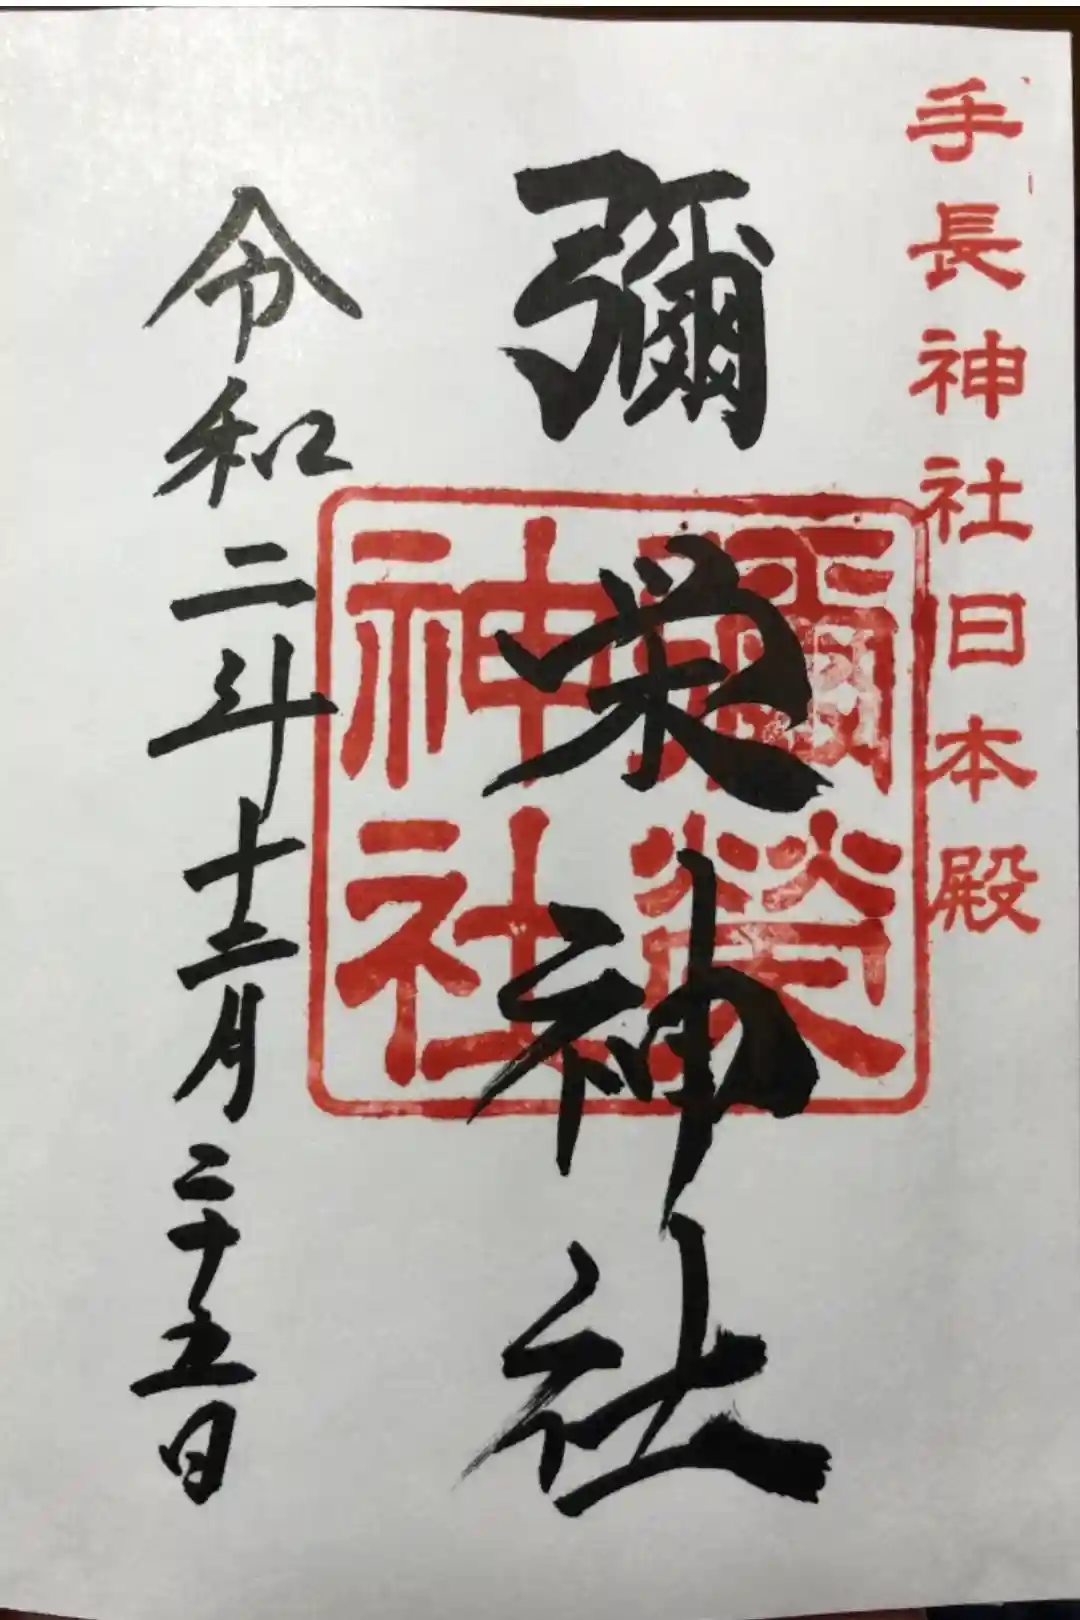 手長神社旧本殿
彌栄神社
彌榮
神社
令和二年十二月二十五日